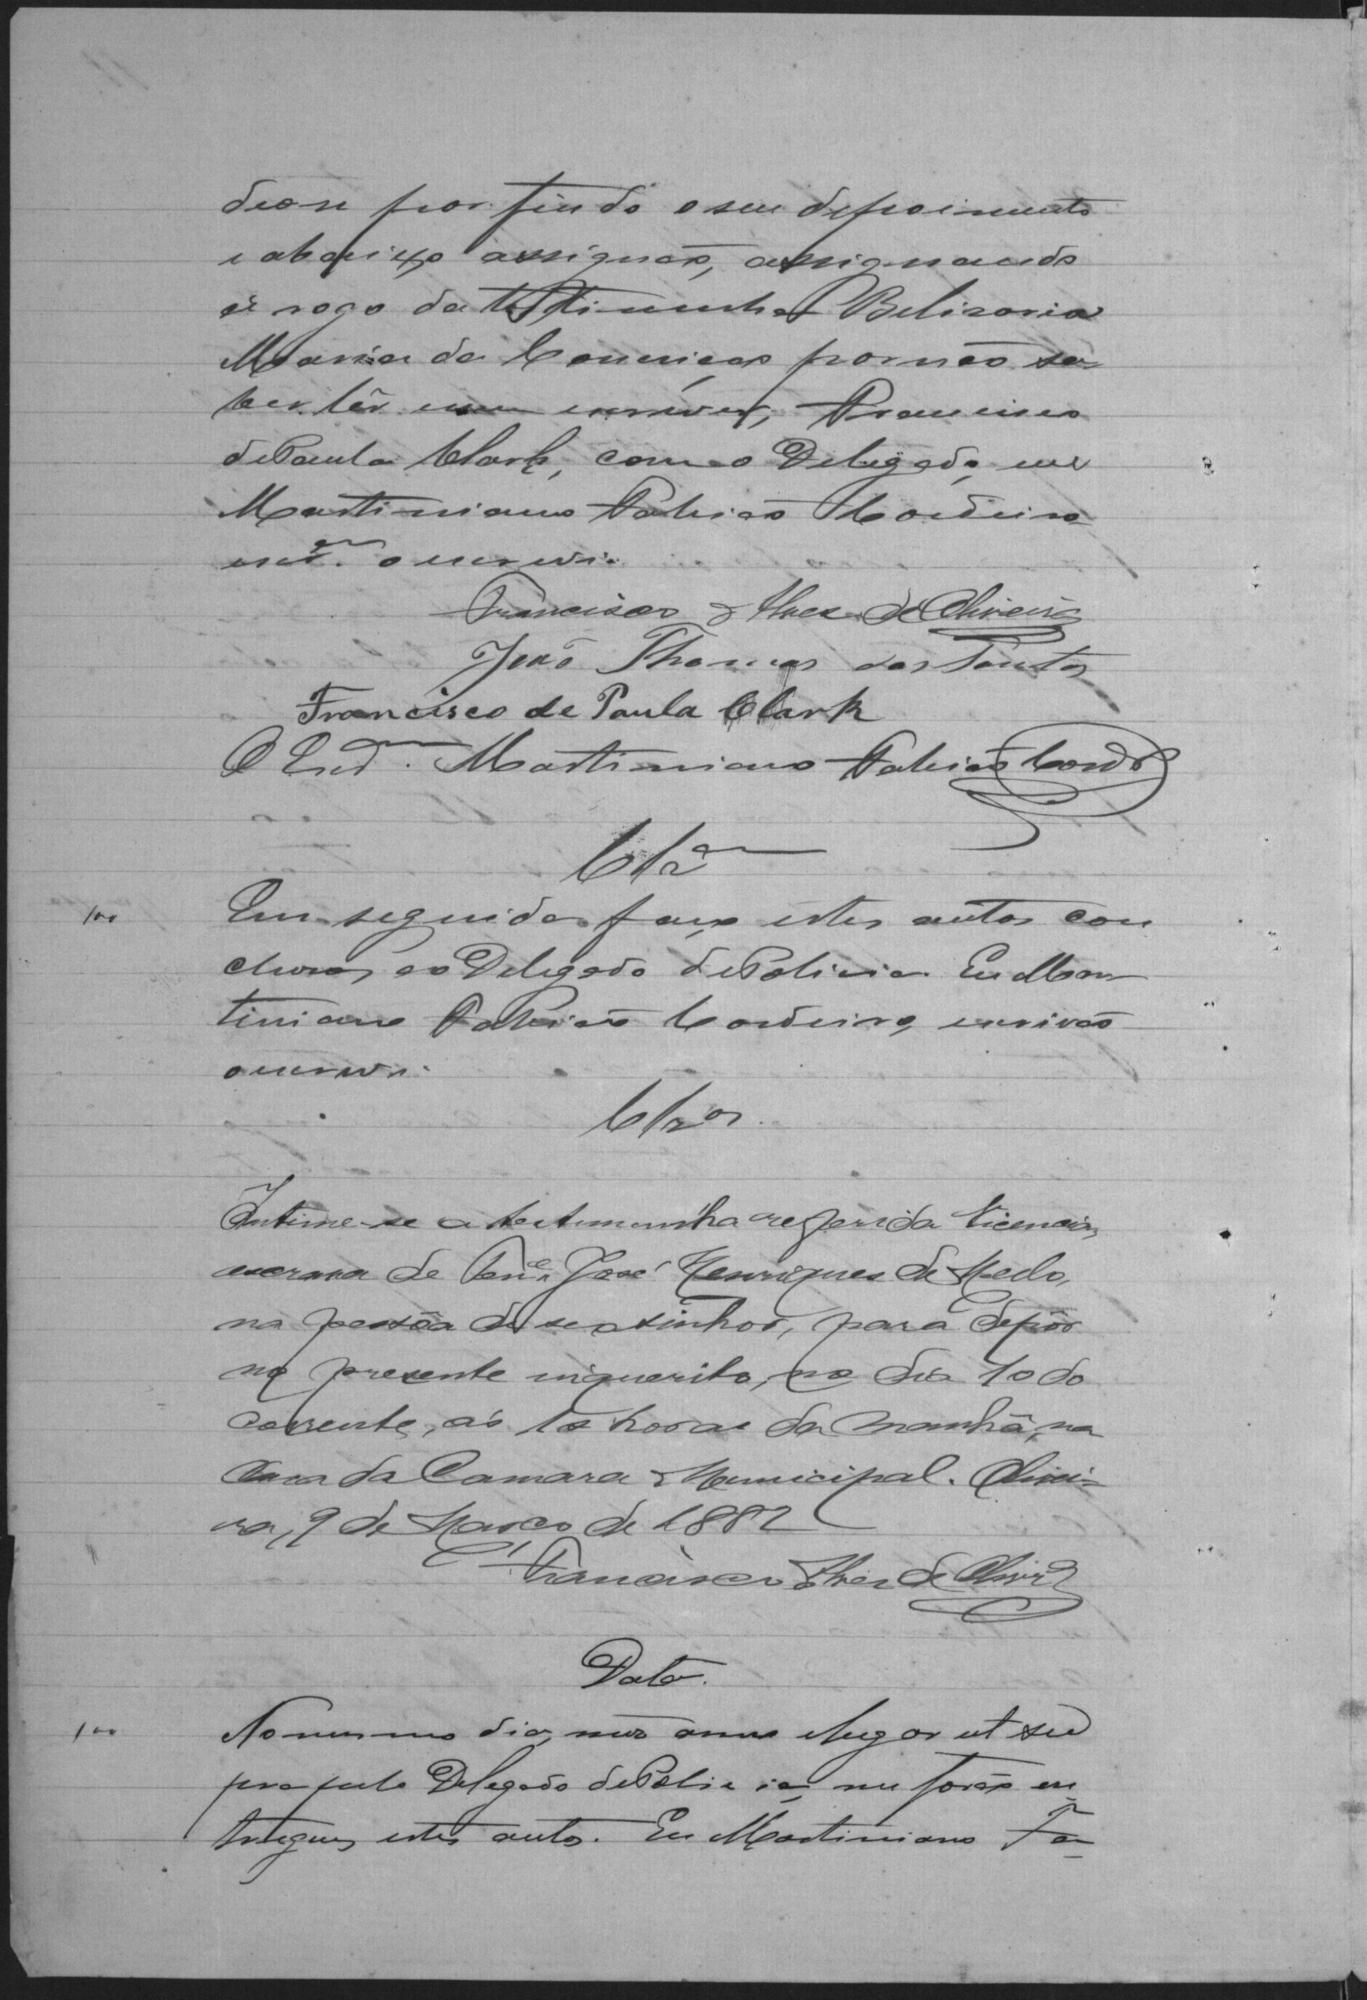 deo-se por findo o seu depoimento
e abaixo assignão, assignando
á rogo da testimunha Belizaria
Maria da Conceição por não sa-
ber lêr nem escrever, Francisco
de Paula Clark, com o Delegado, eu
Martiniano Fabricio Cordeiro
escr.ão o escrevi.
Francisco Alves de Oliveira
João Thomas dos Santos
Francisco de Paula Clark
O Escr.ão Martiniano Fabricio Cordr.o
Clzão
100 Em seguida faço estes autos con
clusos ao Delegado de Policia. Eu Mar
tiniano Fabricio Cordeiro, escrivão
o escrevi.
Clzos
Intime-se a testemunha referida Vicencia,
escrava de José Henriques de Mello,
na pessôa de seo sinhor, para depôr
no presente inquerito, no dia 10 do
corrente, ás 10 horas da manhã, na
Casa da Camara Municipal. Olivei-
ra, 9 de Março de 1882
Francisco Alves de Olivr.a
Data.
100 No mesmo dia, mes anno e lugar ut
Delegado de Policia, me forão en
tregues estes autos. Eu Martiniano Fa-